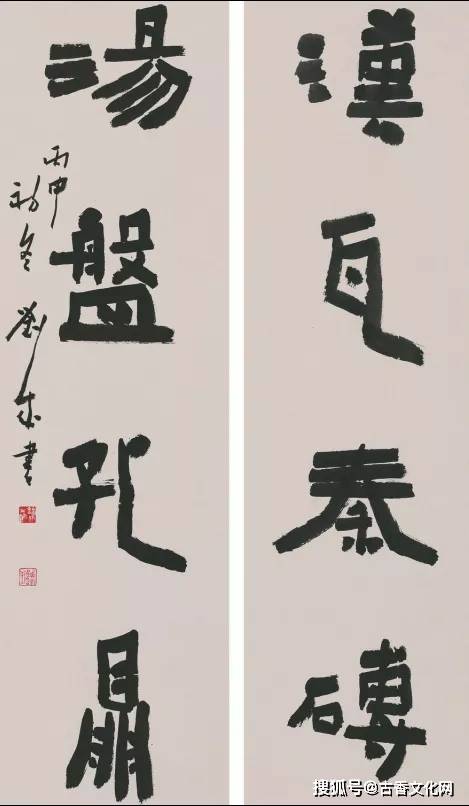 漢瓦秦磚
湯盤孔鼎
丙申初冬劉成書
搜狐号@古香文化网